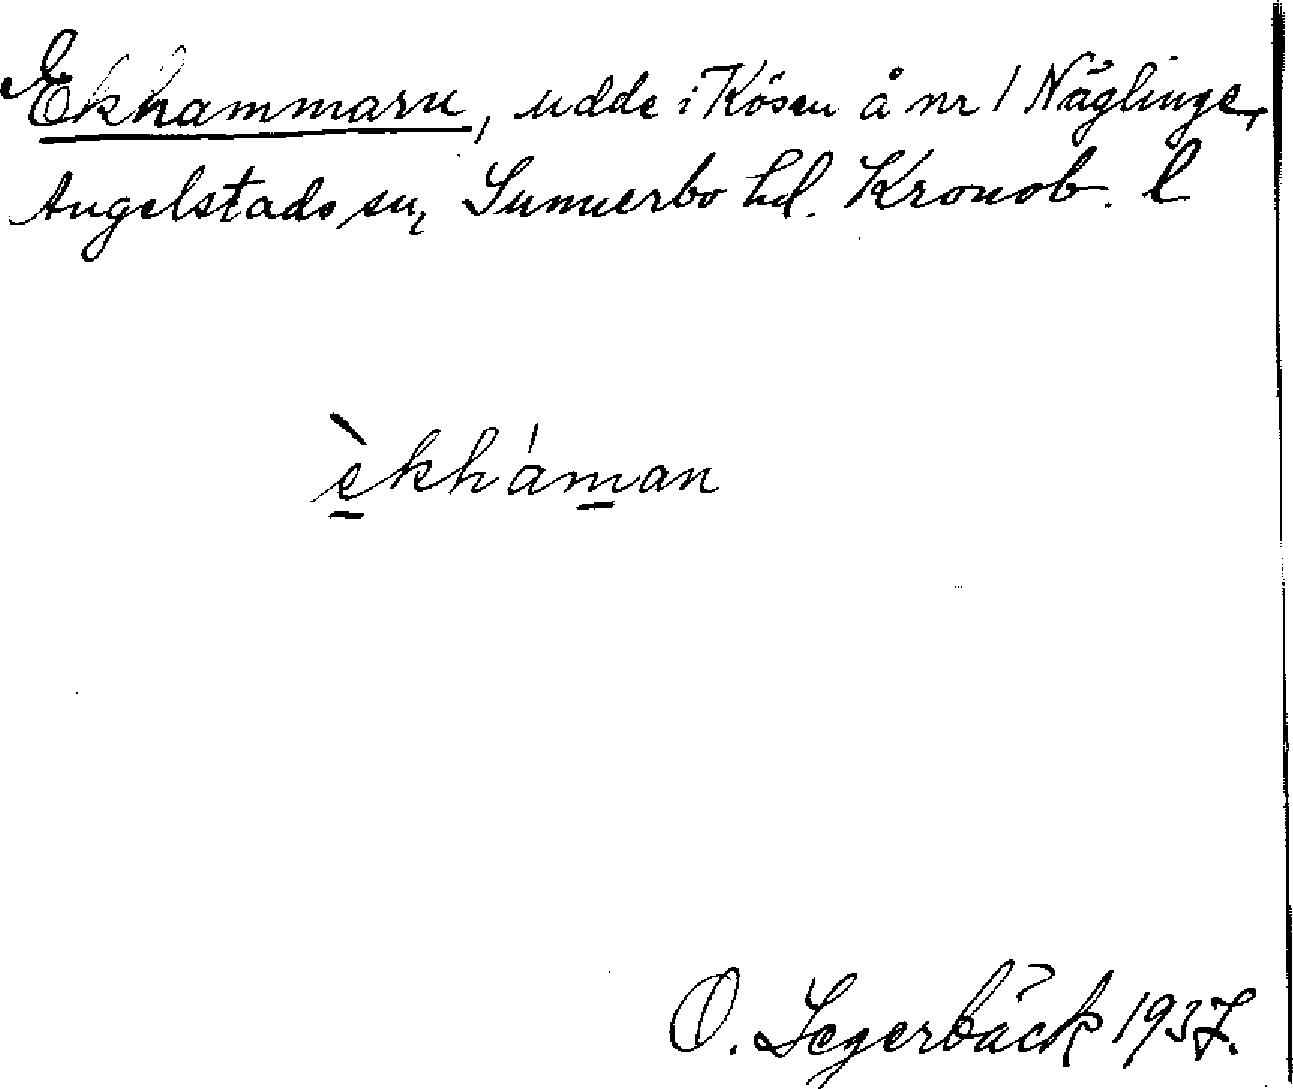 Ekhammarn, udde i Kösen å nr 1 Näglinge,
Angelstads sn, Sunnerbo hd. Kronob. l
èkháman
O. Segerbäck 1937.